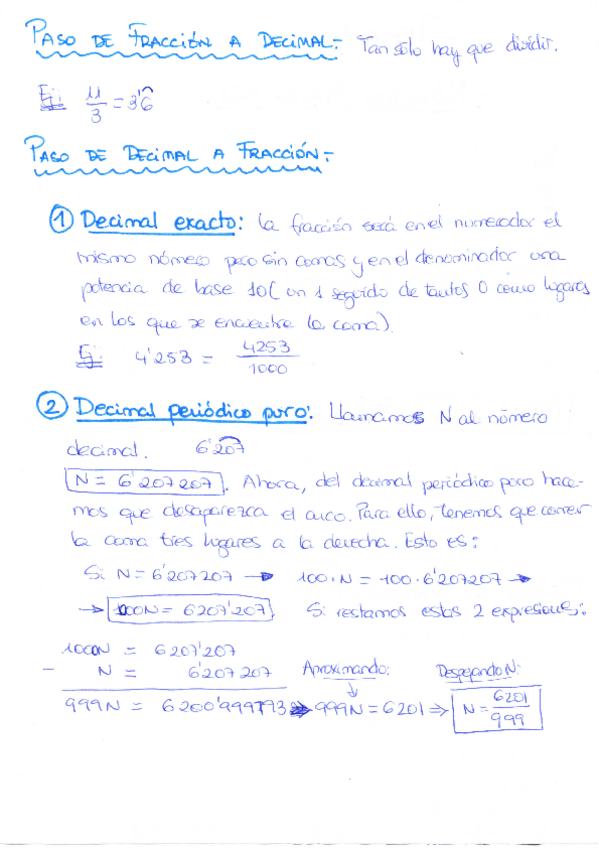 PASO DE FRACCIÓN A DECIMAL:- Tan sólo hay que dividir.
Ej: 11/3 = 3'6̂
PASO DE DECIMAL A FRACCIÓN:-
① Decimal exacto: La fracción será en el numerador el
mismo número pero sin comas y en el denominador una
potencia de base 10 (un 1 seguido de tantos 0 como lugares
en los que se encuentre la coma).
Ej: 4'253 = 4253/1000
② Decimal periódico puro: Llamamos N al número
decimal. 6'207
N = 6'207207. Ahora, del decimal periódico puro hace-
mos que desaparezca el arco. Para ello, tenemos que correr
la coma tres lugares a la derecha. Esto es:
Si N = 6'207207 → 100·N = 100·6'207207 →
→ 1000N = 6207'207 Si restamos estas 2 expresiones:
1000N = 6207'207
- N = 6'207207 Aproximando: Despejando N:
999N = 6200'999793 ⇒ 999N = 6201 ⇒ N = 6201/999